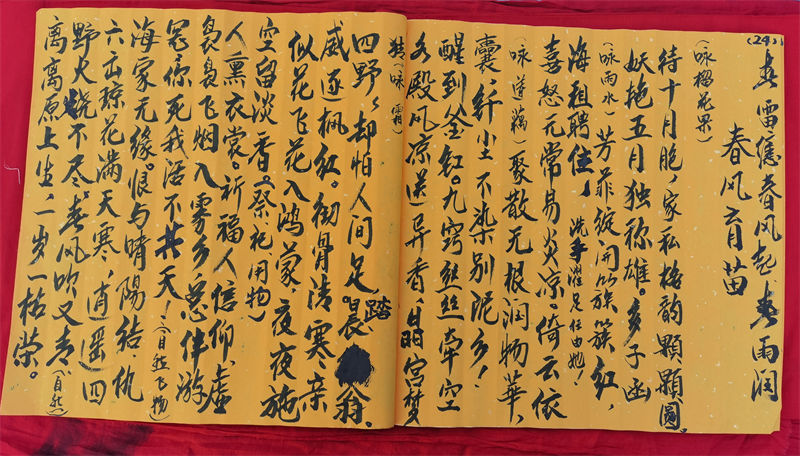 (24)
春雷憶春风起春雨润
春风育苗
(咏榴花果)
待十月胞,家私格韵颗颗圆。
妖艳五月独称雄。多子函
(咏雨水)芳菲绽开簇簇红,
海租聘住!洗手濯足任由她!
喜怒无常易炎凉倚云依
(咏莲藕)聚散无根润物华,
囊纤尘不染别泥乡!
醒到釜缸。九窍丝丝牵空
水殿风凉送异香,晶宫梦
(咏霜)
四野,却怕人间足踏晨翁。
威逐枫红。彻骨清寒亲
似花飞花入鸿蒙,夜夜施
空留淡香(祭祀用物)
人熏衣裳。祈福人信仰,虚
袅袅飞烟入雾乡,忽伴游
冤。你死我活不共天!(自然飞物)
海家无缘恨与晴阳结仇
六出琼花满天寒,逍遥四
野火烧不尽,春风吹又春(自然)
离离原上生,一岁一枯荣。